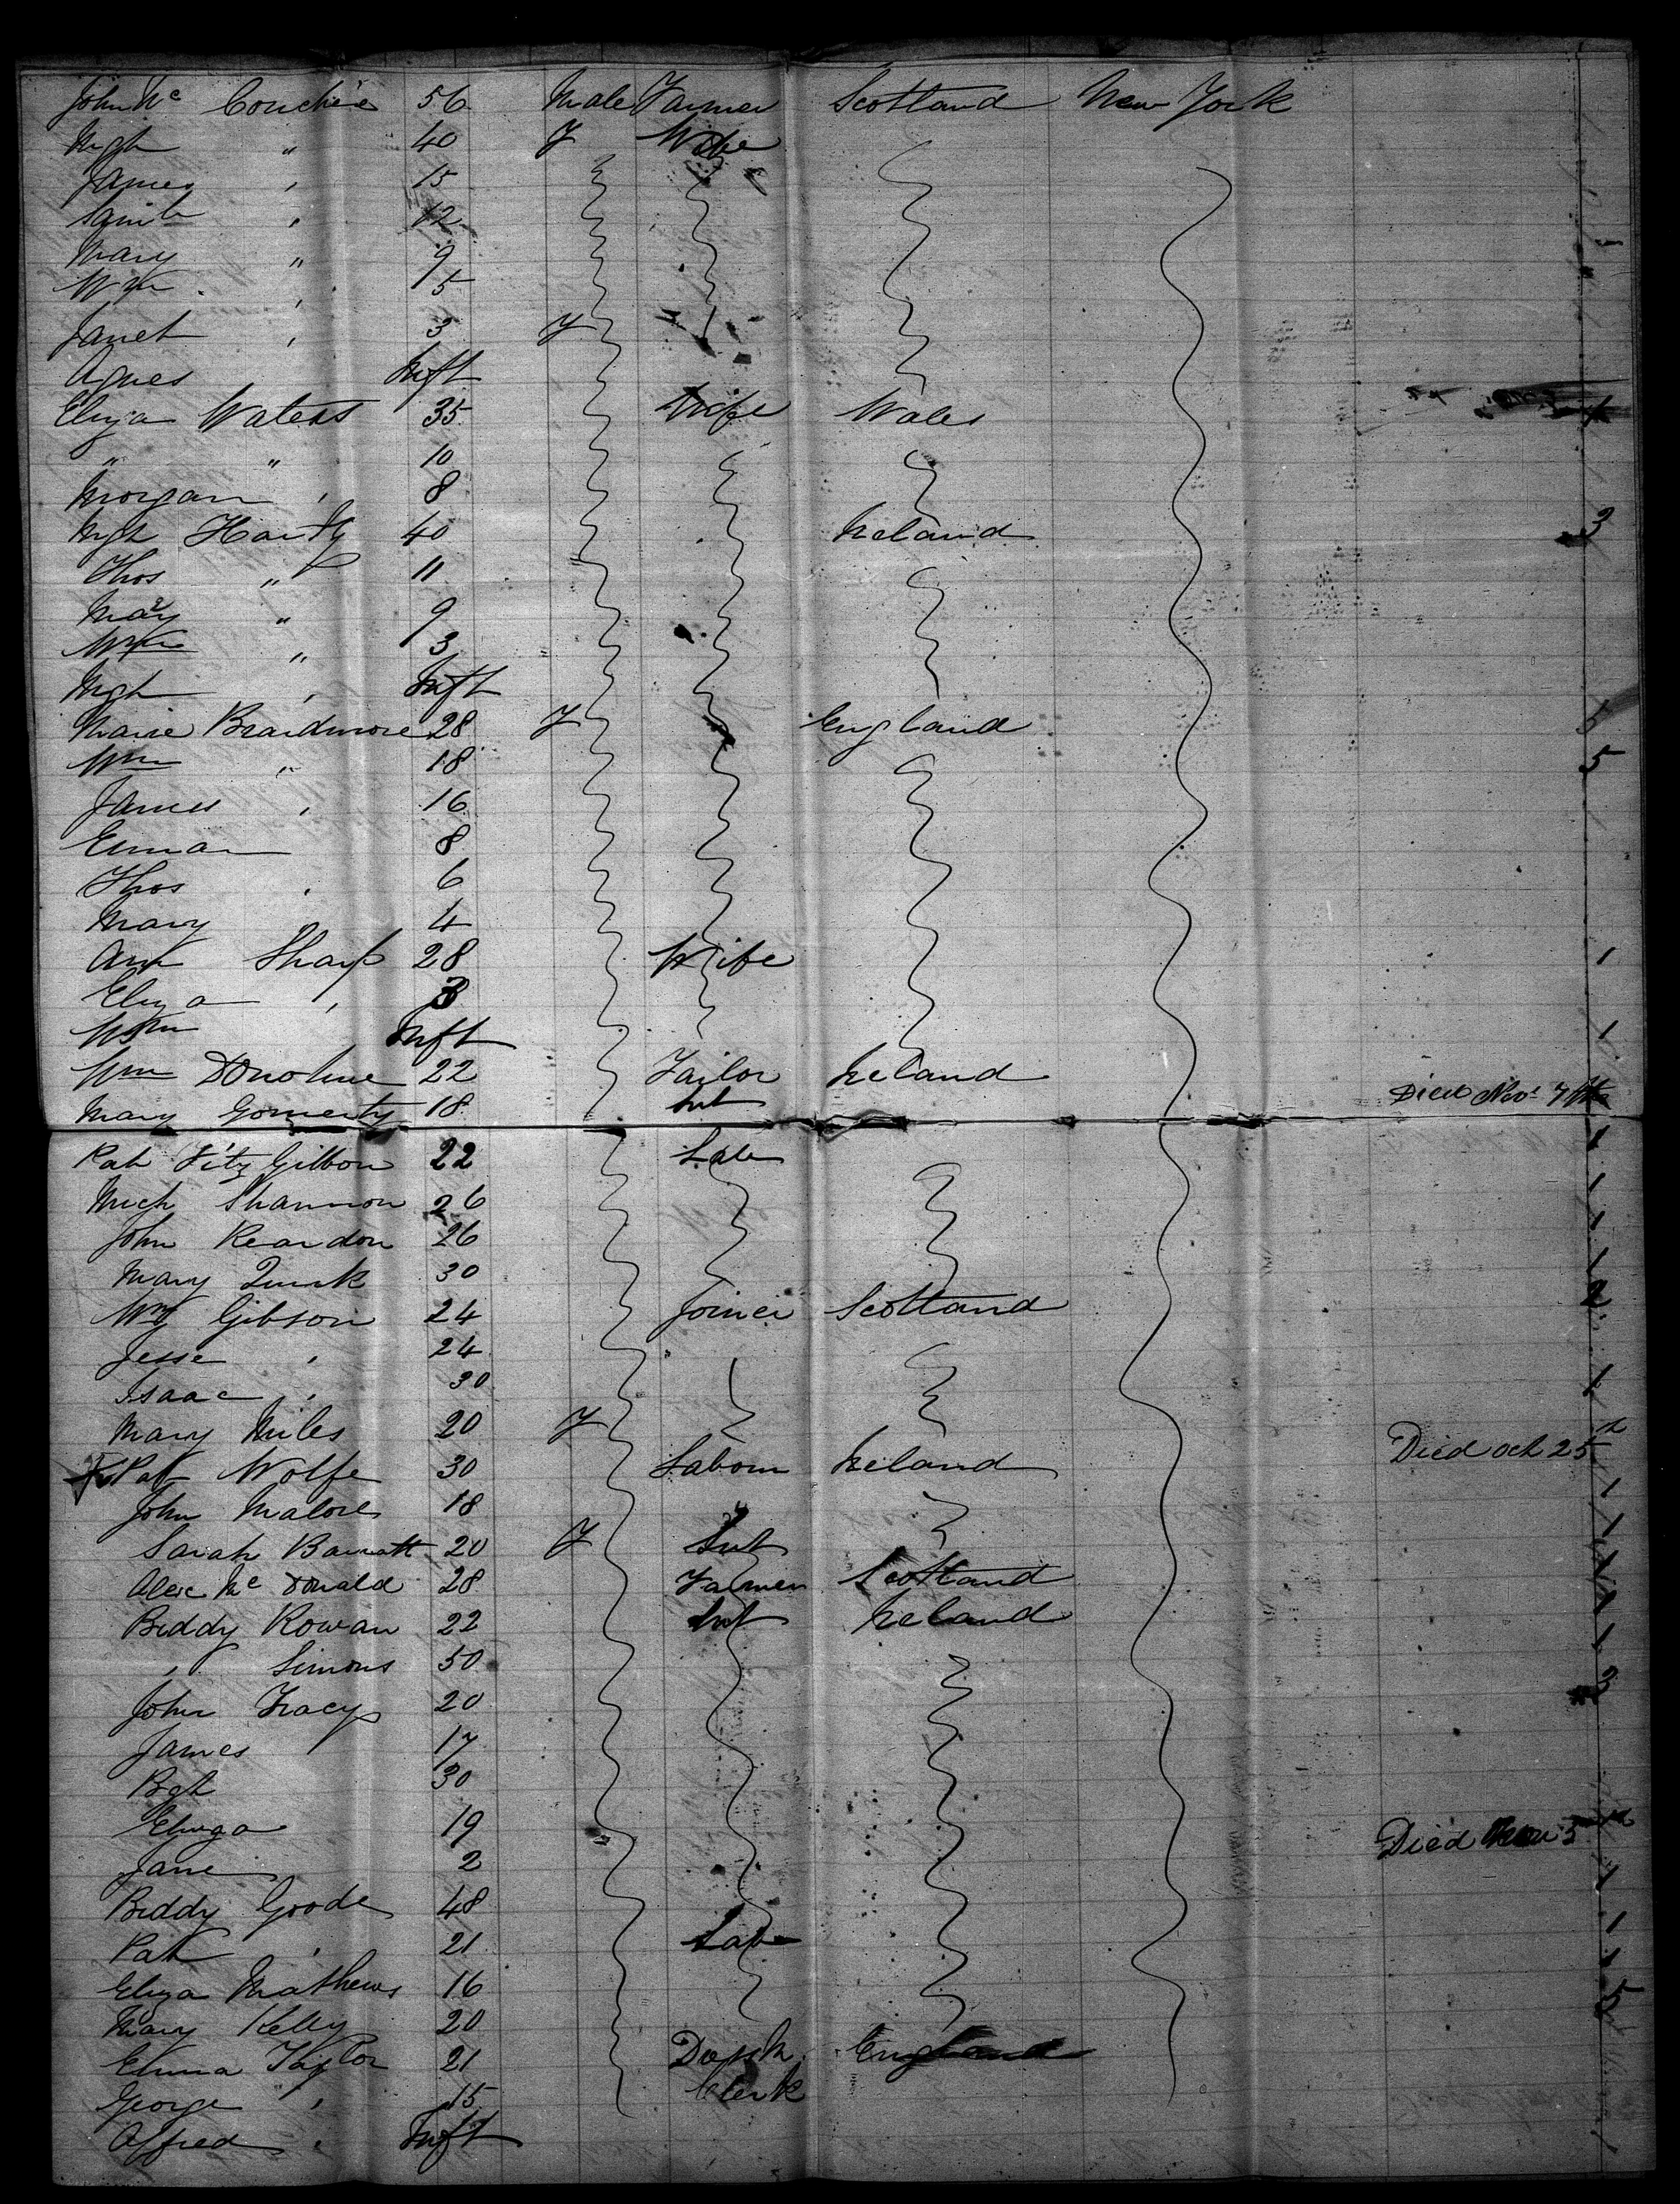 John Mc Conchie 56 Male Farmer Scotland New York
Mgt " 40 F Wife
James " 15
" 12
Mary " 9
Wm " 5
Janet " 3 F
Agnes Inft
Eliza Waters 35 Wife Wales
" " 10
Morgan " 8
Mgt Hartly 40 Ireland 3
Thos " 11
Mary " 9
Wm " 3
Mgt " Inft
Marie Beardmore 28 F England 5
Wm " 18 5
James " 16
Emma 8
Thos " 6
Mary 4
Ann Sharp 28 Wife 1
Eliza " 3
Wm Inft 1
Wm Donohue 22 Tailor Ireland
Mary 18 Died Nov 7th
Pat Fitz Gibbon 22 Lab 1
Mich Shannon 26 1
John Reardon 26 1
Mary Quirk 30 1
Wm Gibson 24 Joiner Scotland 2
Jesse " 24
Isaac " 30 1
Mary Miles 20 F
Pat Wolfe 30 Labour Ireland Died Oct 25th
John Malone 18 1
Sarah Barratt 20 F 1
Alex Mc Donald 28 Farmer Scotland 1
Biddy Rowan 22 Ireland 1
" Simons 50 1
John Tracy 20 3
James 17
Bgt 30
Eliza 19 Died 5th
Jane 2
Biddy Goode 48 1
Pat " 21 Lab 1
Eliza Mathews 16 1
Mary Kelly 20
Emma Taylor 21 England
George " 15 Clerk
Alfred " Inft